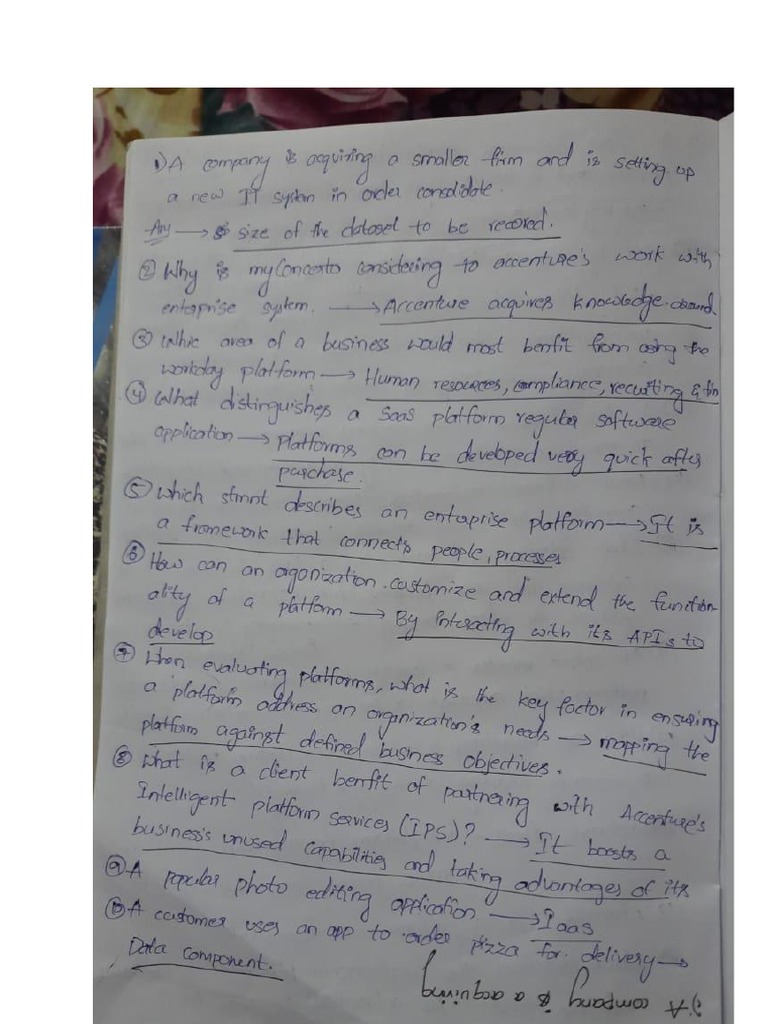 1) A company is acquiring a smaller firm and is setting up
a new IT system in order consolidate.
Ans → size of the dataset to be recored.
② Why is myConcerto considering to accenture's work with
enterprise system. → Accenture acquires knowledge
③ Whic area of a business would most benfit from using the
workday platform → Human resources, compliance, recruiting & fin
④ What distinguishes a SaaS platform regular software
application → Platforms can be developed very quick after
purchase.
⑤ Which stmnt describes an enterprise platform → It is
a framework that connects people, processes
⑥ How can an organization customize and extend the function-
ality of a platform → By Interacting with its APIs to
develop
⑦ When evaluating platforms, what is the key factor in ensuring
a platform address an organization's needs → mapping the
platform against defined business objectives.
⑧ What is a client benfit of partnering with Accenture's
Intelligent platform services (IPS)? → It boosts a
business's unused capabilities and taking advantages of its
⑨ A popular photo editing application → Iaas
⑩ A customer uses an app to order pizza for delivery →
Data component.
1) A company is a acquiring